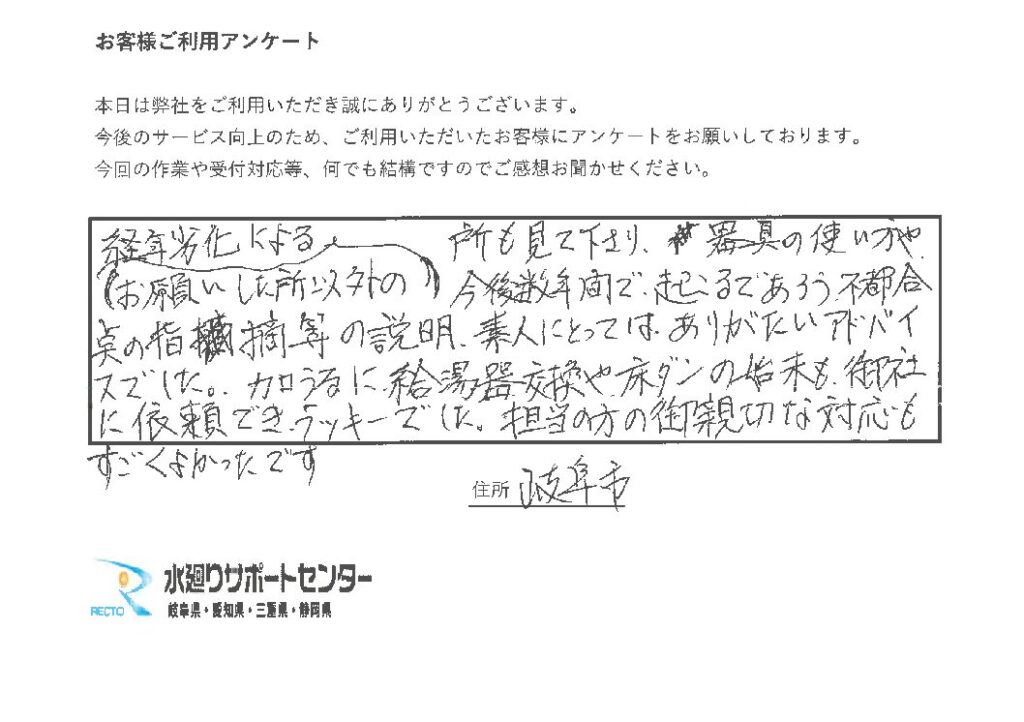 お客様ご利用アンケート
本日は弊社をご利用いただき誠にありがとうございます。
今後のサービス向上のため、ご利用いただいたお客様にアンケートをお願いしております。
今回の作業や受付対応等、何でも結構ですのでご感想お聞かせください。
経年劣化による 所も見て下さり、器具の使い方や
(お願いした所以外の) 今後数年間で、起こるであろう不都合
点の指摘等の説明、素人にとっては、ありがたいアドバイ
スでした。カロうるに、給湯器交換や、床ダンの始末も、御社
に依頼でき、ラッキーでした。担当の方の御親切な対応も
すごくよかったです
住所 岐阜市
RECTO
水廻りサポートセンター
岐阜県・愛知県・三重県・静岡県